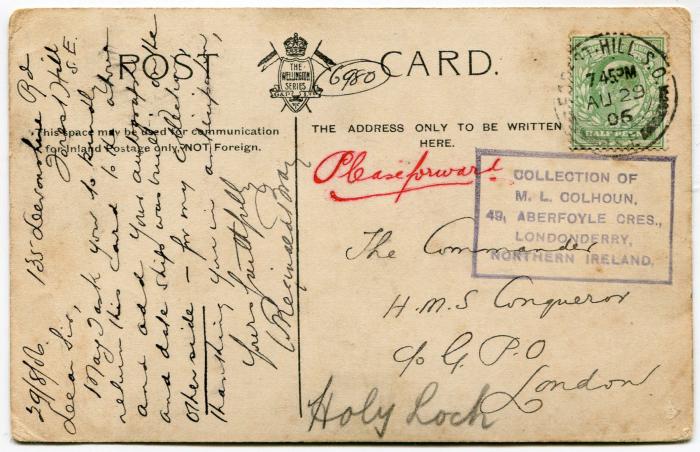 POST CARD.
THE
WELLINGTON
SERIES
6980
This space may be used for communication
for Inland Postage only, NOT Foreign.
THE ADDRESS ONLY TO BE WRITTEN
HERE.
135 Devonshire Rd
Forest Hill
S.E.
29/8/06.
Dear Sir,
May I ask you to kindly
return this card to my above
and add your autograph
and date ship was built on the
other side – for my collection
Thanking you in anticipation,
Yours faithfully
Reginald Bray
Please forward
The Commander
H.M.S Conqueror
c/o G.P.O
London.
Holy Loch
HILL S.O.
7.45PM
AU 29
06
HALF PENNY
COLLECTION OF
M. L. COLHOUN,
49, ABERFOYLE CRES.,
LONDONDERRY,
NORTHERN IRELAND.